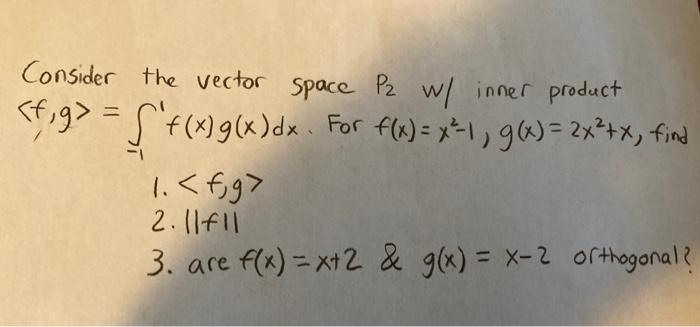 Consider the vector space P₂ w/ inner product
<f,g> = ∫₋₁¹ f(x)g(x)dx. For f(x) = x²-1, g(x) = 2x²+x, find
1. <f,g>
2. ||f||
3. are f(x) = x+2 & g(x) = x-2 orthogonal?